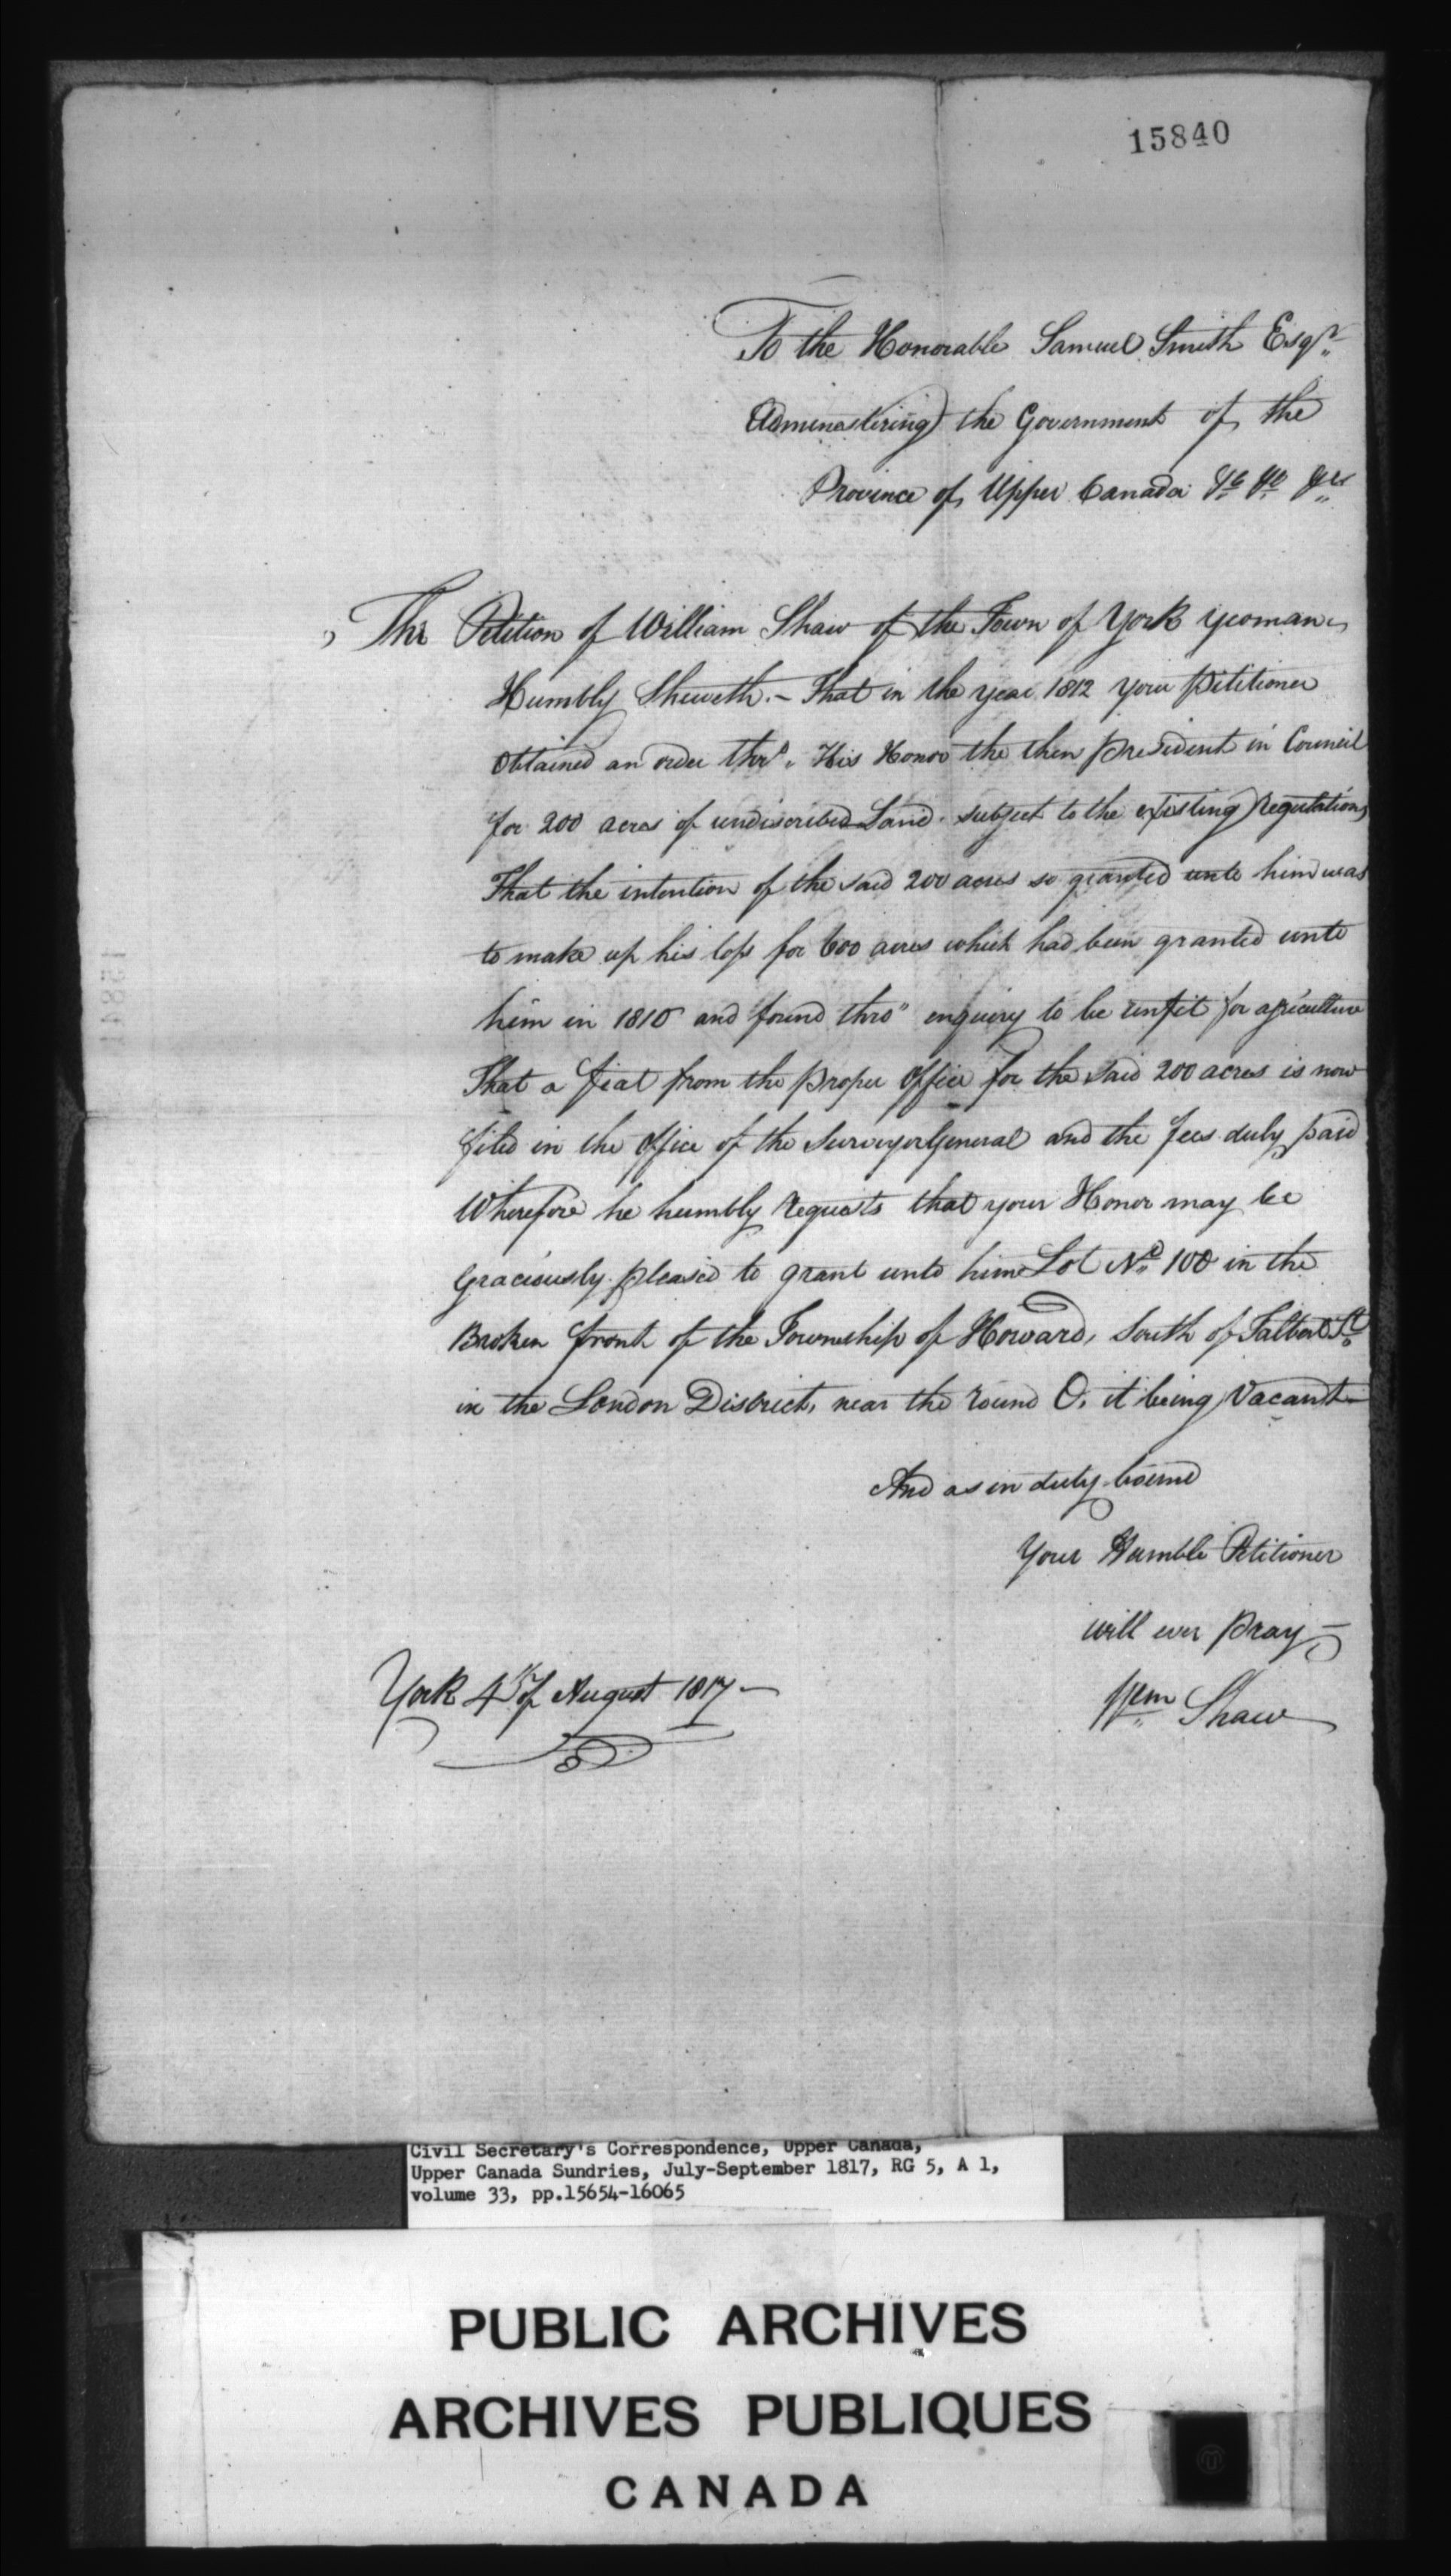 15840
To the Honorable Samuel Smith Esqr.
Adminestiring the Government of the
Province of Upper Canada &c &c &c
The Petition of William Shaw of the Town of York yeoman
Humbly Sheweth. - That in the year 1812 your Petitioner
Obtained an order thro'. His Honor the then President in Council
for 200 acres of undiscribed Land. subject to the existing Regulations
That the intention of the said 200 acres so granted unto him was
to make up his loss for 600 acres which had been granted unto
him in 1810 and found thro" enquiry to be unfit for agriculture
That a fiat from the proper Office for the said 200 acres is now
filed in the Office of the Surveyor General and the fees duly paid
Wherefore he humbly Requests that your Honor may be
Graciously pleased to grant unto him Lot No. 100 in the
Broken front of the Township of Howard, South of Talbot St.
in the London District, near the round O. it being Vacant
And as in duty bound
Your Humble Petitioner
will ever Pray -
York 4th of August 1817 -
Wm. Shaw
Civil Secretary's Correspondence, Upper Canada,
Upper Canada Sundries, July-September 1817, RG 5, A 1,
volume 33, pp.15654-16065
PUBLIC ARCHIVES
ARCHIVES PUBLIQUES
CANADA